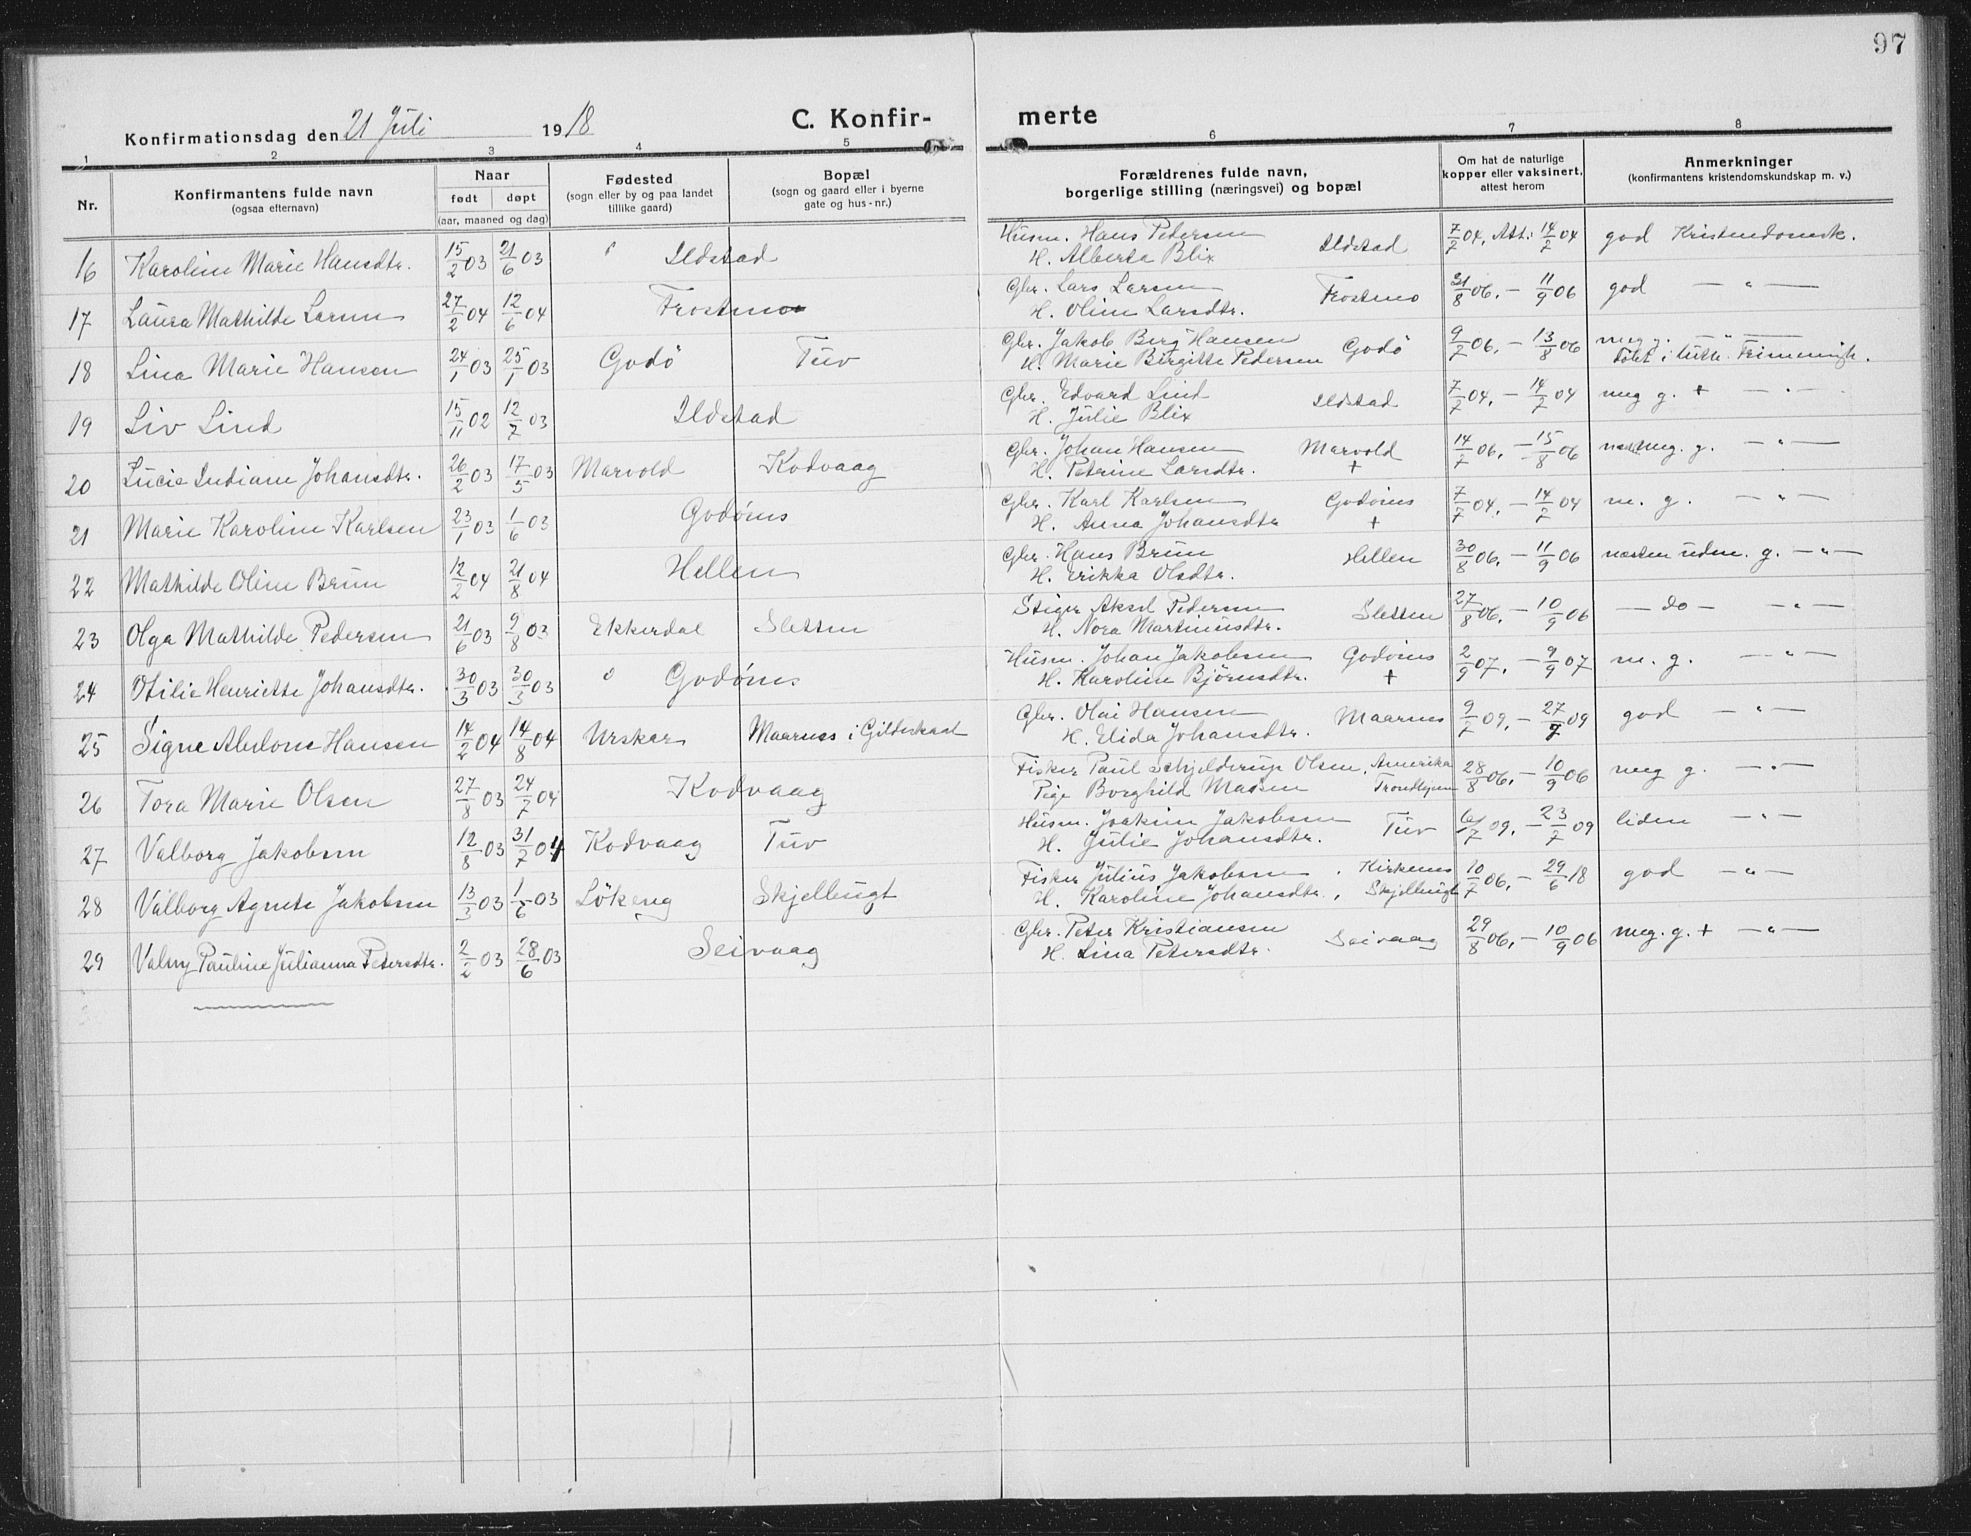 97
Konfirmationsdag den 21 Juli 1918 C. Konfir- merte
1 2 3 4 5 6 7 8
Nr. Konfirmantens fulde navn (ogsaa efternavn) Naar født døpt (aar, maaned og dag) Fødested (sogn eller by og paa landet tillike gaard) Bopæl (sogn og gaard eller i byerne gate og hus-nr.) Forældrenes fulde navn, borgerlige stilling (næringsvei) og bopæl Om hat de naturlige kopper eller vaksinert, attest herom Anmerkninger (konfirmantens kristendomskundskap m. v.)
16 Karoline Marie Hansdtr. 15/2 03 21/6 03 " Ildstad Husm. Hans Pedersen H. Alberta Blix Ildstad 7/7 04. Att: 14/7 04 god Kristendomsk.
17 Laura Mathilde Larsen 27/2 04 12/6 04 Frostmo Gbr. Lars Larsen H. Oline Larsdtr. Frostmo 31/8 06. — 11/9 06 god — " —
18 Lina Marie Hansen 24/1 03 25/1 03 Godö Tuv Gbr. Jakob Berg Hansen H. Marie Birgitte Pedersen Godö 9/7 06. — 13/8 06 meg g. — " — Døbt i luth. Frimenigh.
19 Liv Lind 15/11 02 12/7 03 Ildstad Gbr. Edvard Lind H. Julie Blix Ildstad 7/7 04. — 14/7 04 meg g. + — " —
20 Lucie Indiane Johansdtr. 26/2 03 17/5 03 Marvold Kodvaag Gbr. Johan Hansen H. Petrine Larsdtr. Marvold + 14/7 06. — 15/8 06 meg. g. — " —
21 Marie Karoline Karlsen 23/1 03 1/6 03 Godönes Gbr. Karl Karlsen H. Anna Johansdtr Godönes + 7/7 04. — 14/7 04 m. g. — " —
22 Mathilde Oline Brun 12/2 04 21/8 04 Hellen Gbr. Hans Brun H. Erikka Olsdtr. Hellen 30/8 06. — 11/9 06 næsten uden. g. — " —
23 Olga Mathilde Pedersen 21/6 03 9/8 03 Ekkerdal Sletten Stiger Aksel Pedersen H. Nora Martinusdtr. Sletten 27/8 06. — 10/9 06 — do — — " —
24 Otilie Henriette Johansdtr. 30/3 03 30/3 03 " Godönes Husm. Johan Jakobsen H. Karoline Björnsdtr. Godönes + 2/9 07. — 9/9 07 m. g. — " —
25 Signe Abelone Hansen 14/2 04 14/8 04 Urskar Maarnes i Gildeskaal Gbr. Olai Hansen H. Elida Johansdtr. Maarnes 9/7 09. — 27/7 09 god — " —
26 Tora Marie Olsen 27/8 03 24/7 04 Kodvaag Fisker Paul Schjelderup Olsen, Amerika Pige Borghild Madsen Trondhjem 28/8 06. — 10/9 06 meg g. — " —
27 Valborg Jakobsen 12/8 03 31/7 04 Kodvaag Tuv Husm. Joakim Jakobsen H. Julie Johansdtr. Tuv /7 09. — 23/7 09 liden — " —
28 Valborg Agnete Jakobsen 13/3 03 1/6 03 Lökeng Skjelbugt Fisker Julius Jakobsen, Kirkenes H. Karoline Johansdtr., Skjelbugt 10/7 06. — 29/6 18 god — " —
29 Valmy Pauline Julianna Petersdtr. 2/2 03 28/6 03 Seivaag Gbr. Peter Kristiansen H. Lina Petersdtr. Seivaag 29/8 06. — 10/9 06 meg. g. + — " —